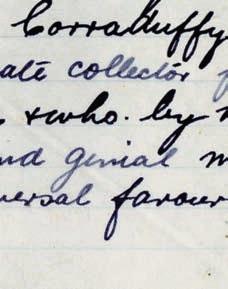 Corraduffy
ate collector
& who. by
nd genial
versal favour